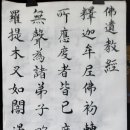 佛遺教經
釋迦牟尼佛初轉
所應度者皆已
無聲為諸弟子略
羅提木叉如闇